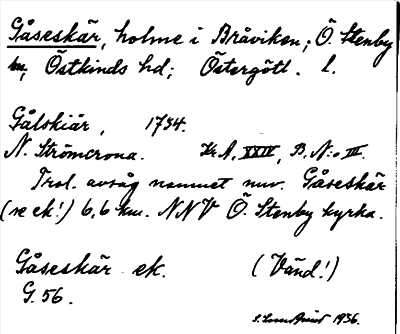 Gåseskär, holme i Bråviken; Ö. Stenby
sn, Östkinds hd; Östergötl. l.
Gålskiär, 1734.
N. Strömcrona. Kr A, XXIV, B. N:o III.
Trol. avsåg namnet nuv. Gåseskär
(se ek!) 6,6 km. NNV Ö. Stenby kyrka.
Gåseskär ek. (Vänd!)
G. 56.
1936.